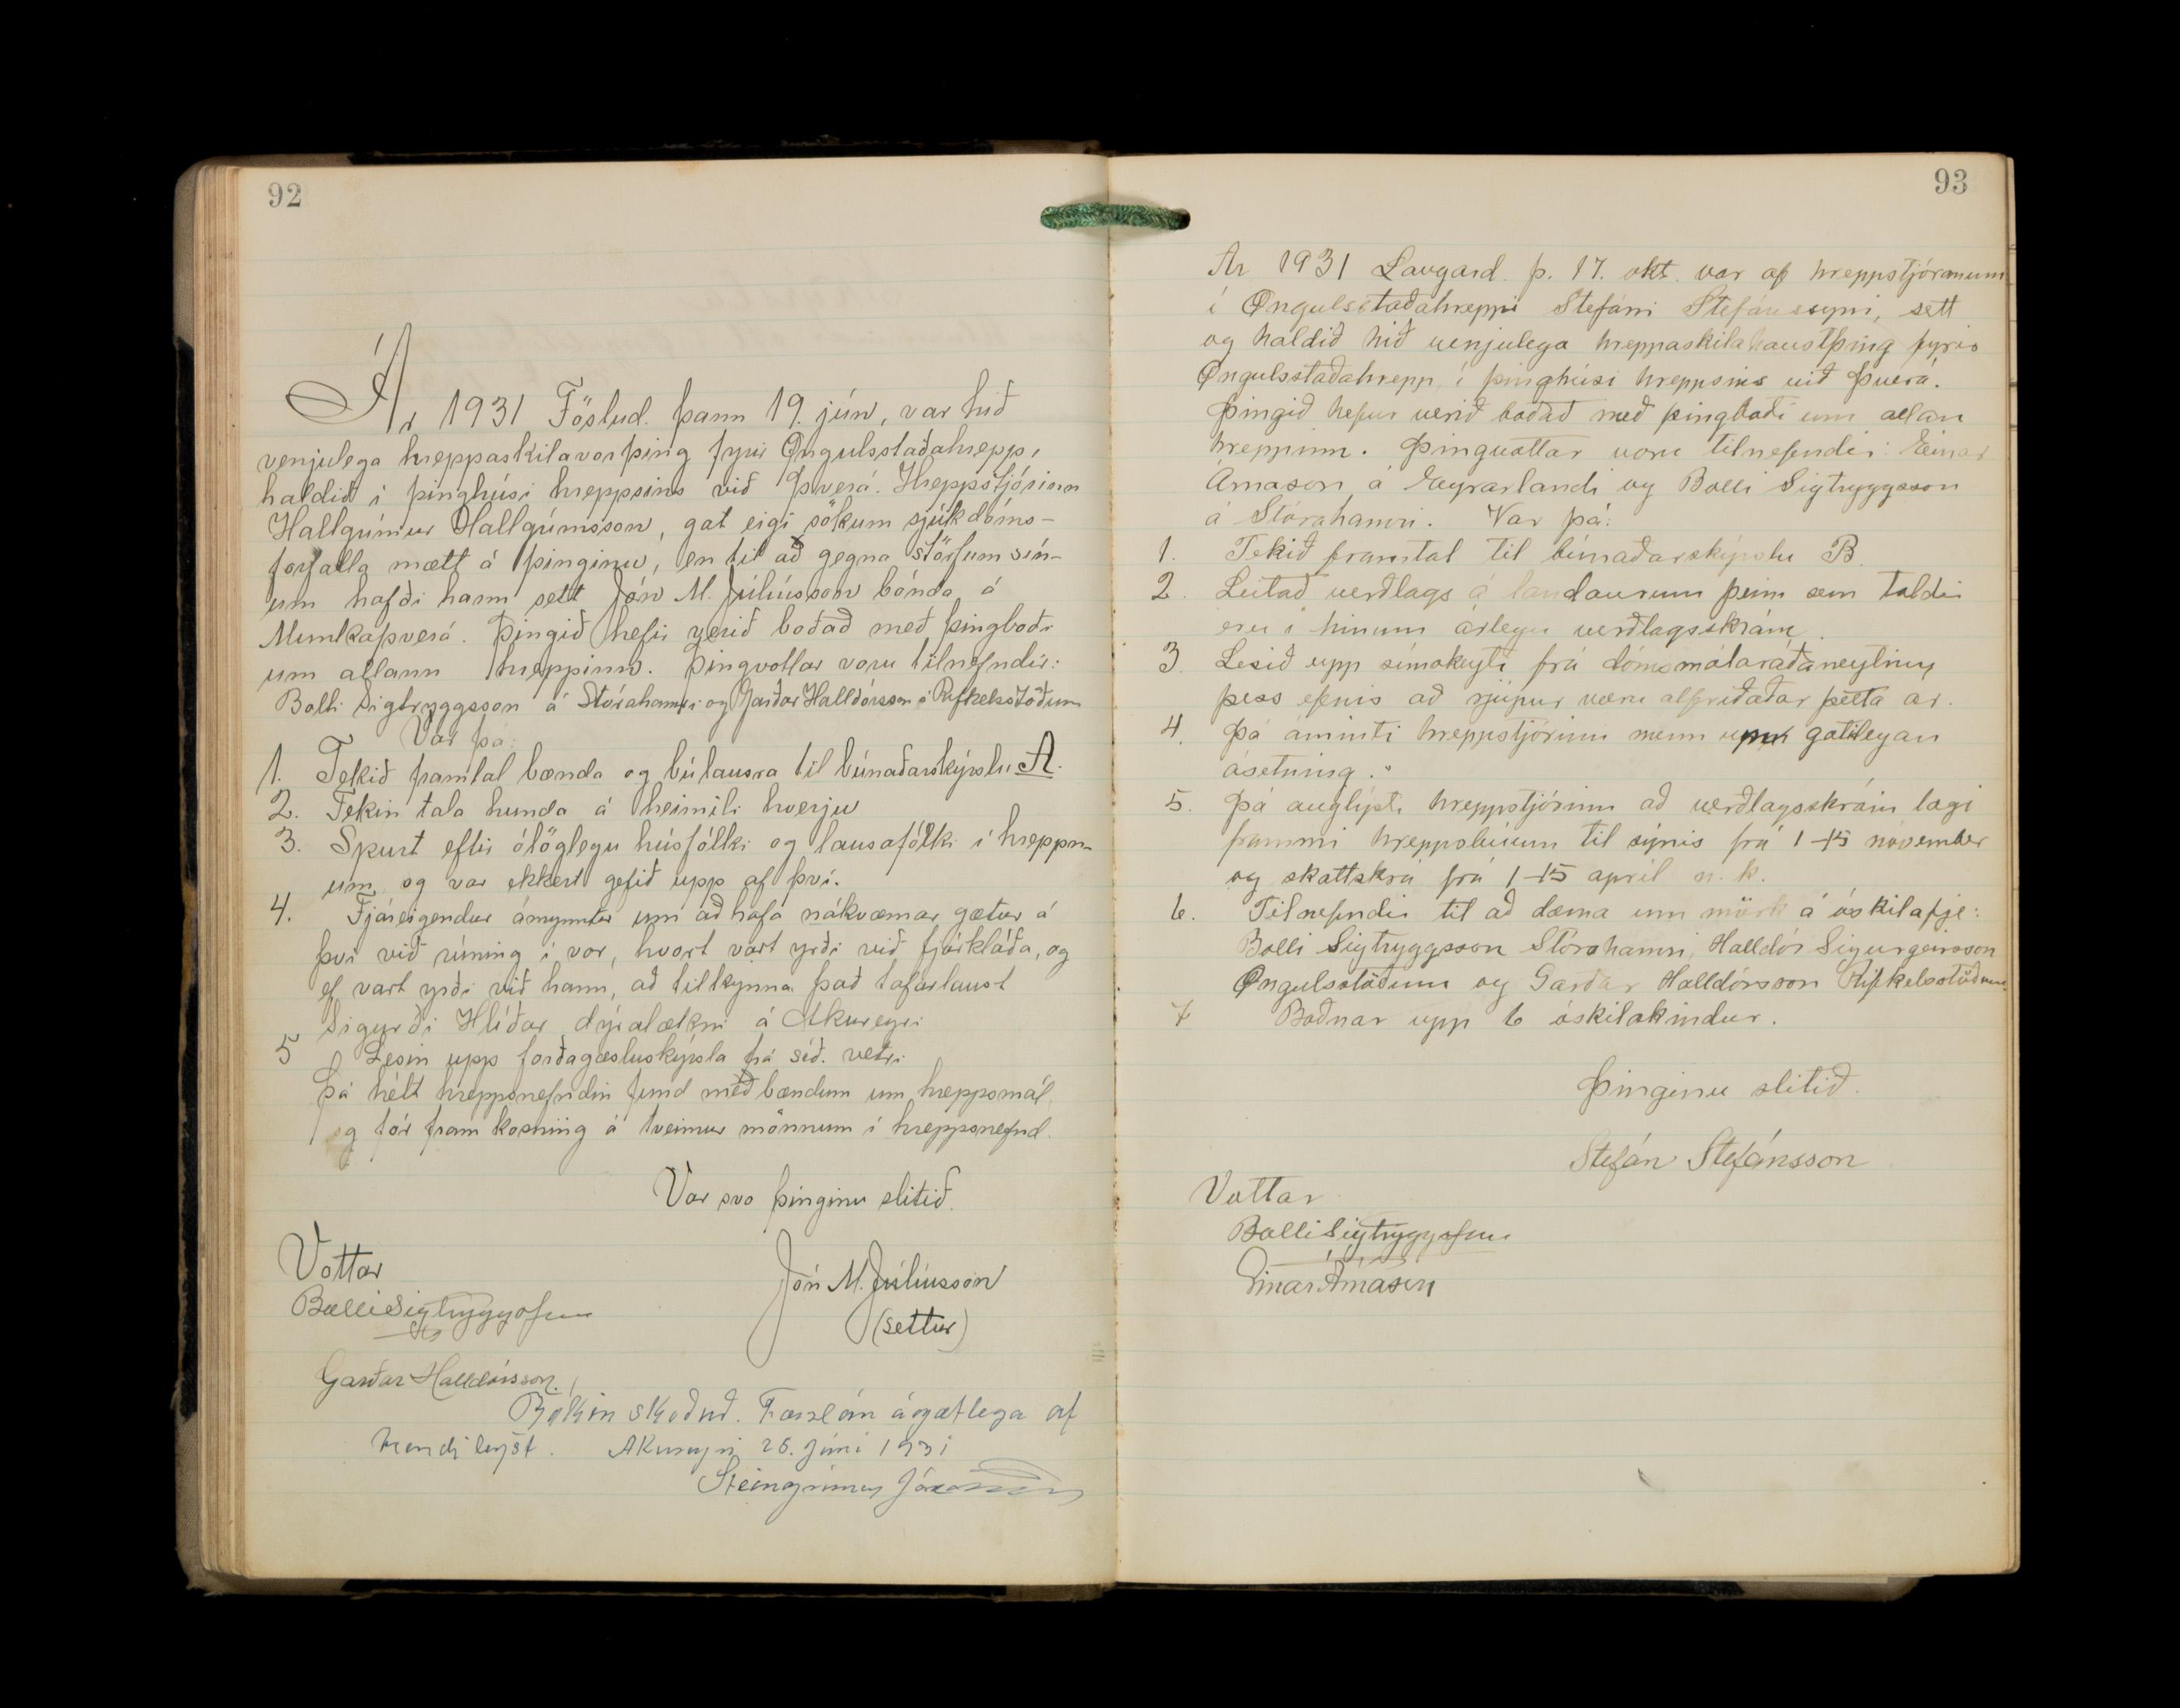 92
Ár 1931 Föstud. þann 19. jún, var hið
venjulega hreppaskilavorþing fyrir Öngulsstaðahrepp,
haldið í þinghúsi hreppsins við Þverá. Hreppstjórinn
Hallgrímur Hallgrímsson, gat eigi sökum sjúkdóms-
forfalla mætt á þinginu, en til að gegna störfum sín-
um hafði hann sett Jón M. Júlíusson bónda á
Munkaþverá. Þingið hefir verið boðað með þingboði
um allann hreppinn. Þingvottar voru tilnefndir:
Bolli Sigtryggsson á Stórahamri og Garðar Halldórsson á Rifkelsstöðum
Var þá:
1. Tekið framtal bænda og búlausra til búnaðarskýrslu A.
2. Tekin tala hunda á heimili hverju
3. Spurt eftir ólöglegu húsfólki og lausafólki í hreppn-
um og var ekkert gefið upp af því.
4. Fjáreigendur ámynntir um að hafa nákvæmar gætur á
því við rúning í vor, hvort vart yrði við fjárkláða, og
ef vart yrði við hann, að tilkynna það tafarlaust
Sigurði Hlíðar dýralækni á Akureyri
5 Lesin upp forðagæsluskýrsla frá síð. vetri
Þá hélt hreppsnefndin fund með bændum um hreppsmál.
og fór fram kosning á tveimur mönnum í hreppsnefnd.
Var svo þinginu slitið.
Vottar
Bolli Sigtryggsson
Jón M. Júlíusson
(settur)
Garðar Halldórsson.
Bókin skoðuð. Færslan ágætlega af
hendi leyst. Akureyri 26. júní 1931
Steingrímur Jónsson
93
Ár 1931 Laugard. þ. 17. okt. var af hreppstjóranum
í Öngulsstaðahreppi Stefáni Stefánssyni, sett
og haldið hið venjulega hreppaskilahaustþing fyrir
Öngulsstaðahrepp í þinghúsi hreppsins við Þverá.
Þingið hefur verið boðað með þingboði um allan
hreppinn. Þingvottar voru tilnefndir: Einar
Árnason á Eyrarlandi og Bolli Sigtryggsson
á Stórahamri. Var þá:
1. Tekið framtal til búnaðarskýrslu B.
2. Leitað verðlags á landaurum þeim sem taldir
eru í hinum árlegu verðlagsskrám.
3. Lesið upp símskeyti frá dómsmálaráðaneytinu
þess efnis að rjúpur væru alfriðaðar þetta ár.
4. Þá áminnti hreppstjórinn menn um gætilegan
ásetning.
5. Þá auglýsti hreppstjórinn að verðlagsskráin lægi
frammi hreppsbúum til sýnis frá 1-15 november
og skattskrá frá 1-15 apríl n.k.
6. Tilnefndir til að dæma um mörk á óskilafje:
Bolli Sigtryggsson Stórahamri, Halldór Sigurgeirsson
Öngulsstöðum og Garðar Halldórsson Rifkelsstöðum.
7 Boðnar upp 6 óskilakindur.
Þinginu slitið.
Stefán Stefánsson
Vottar
Bolli Sigtryggsson
Einar Árnason